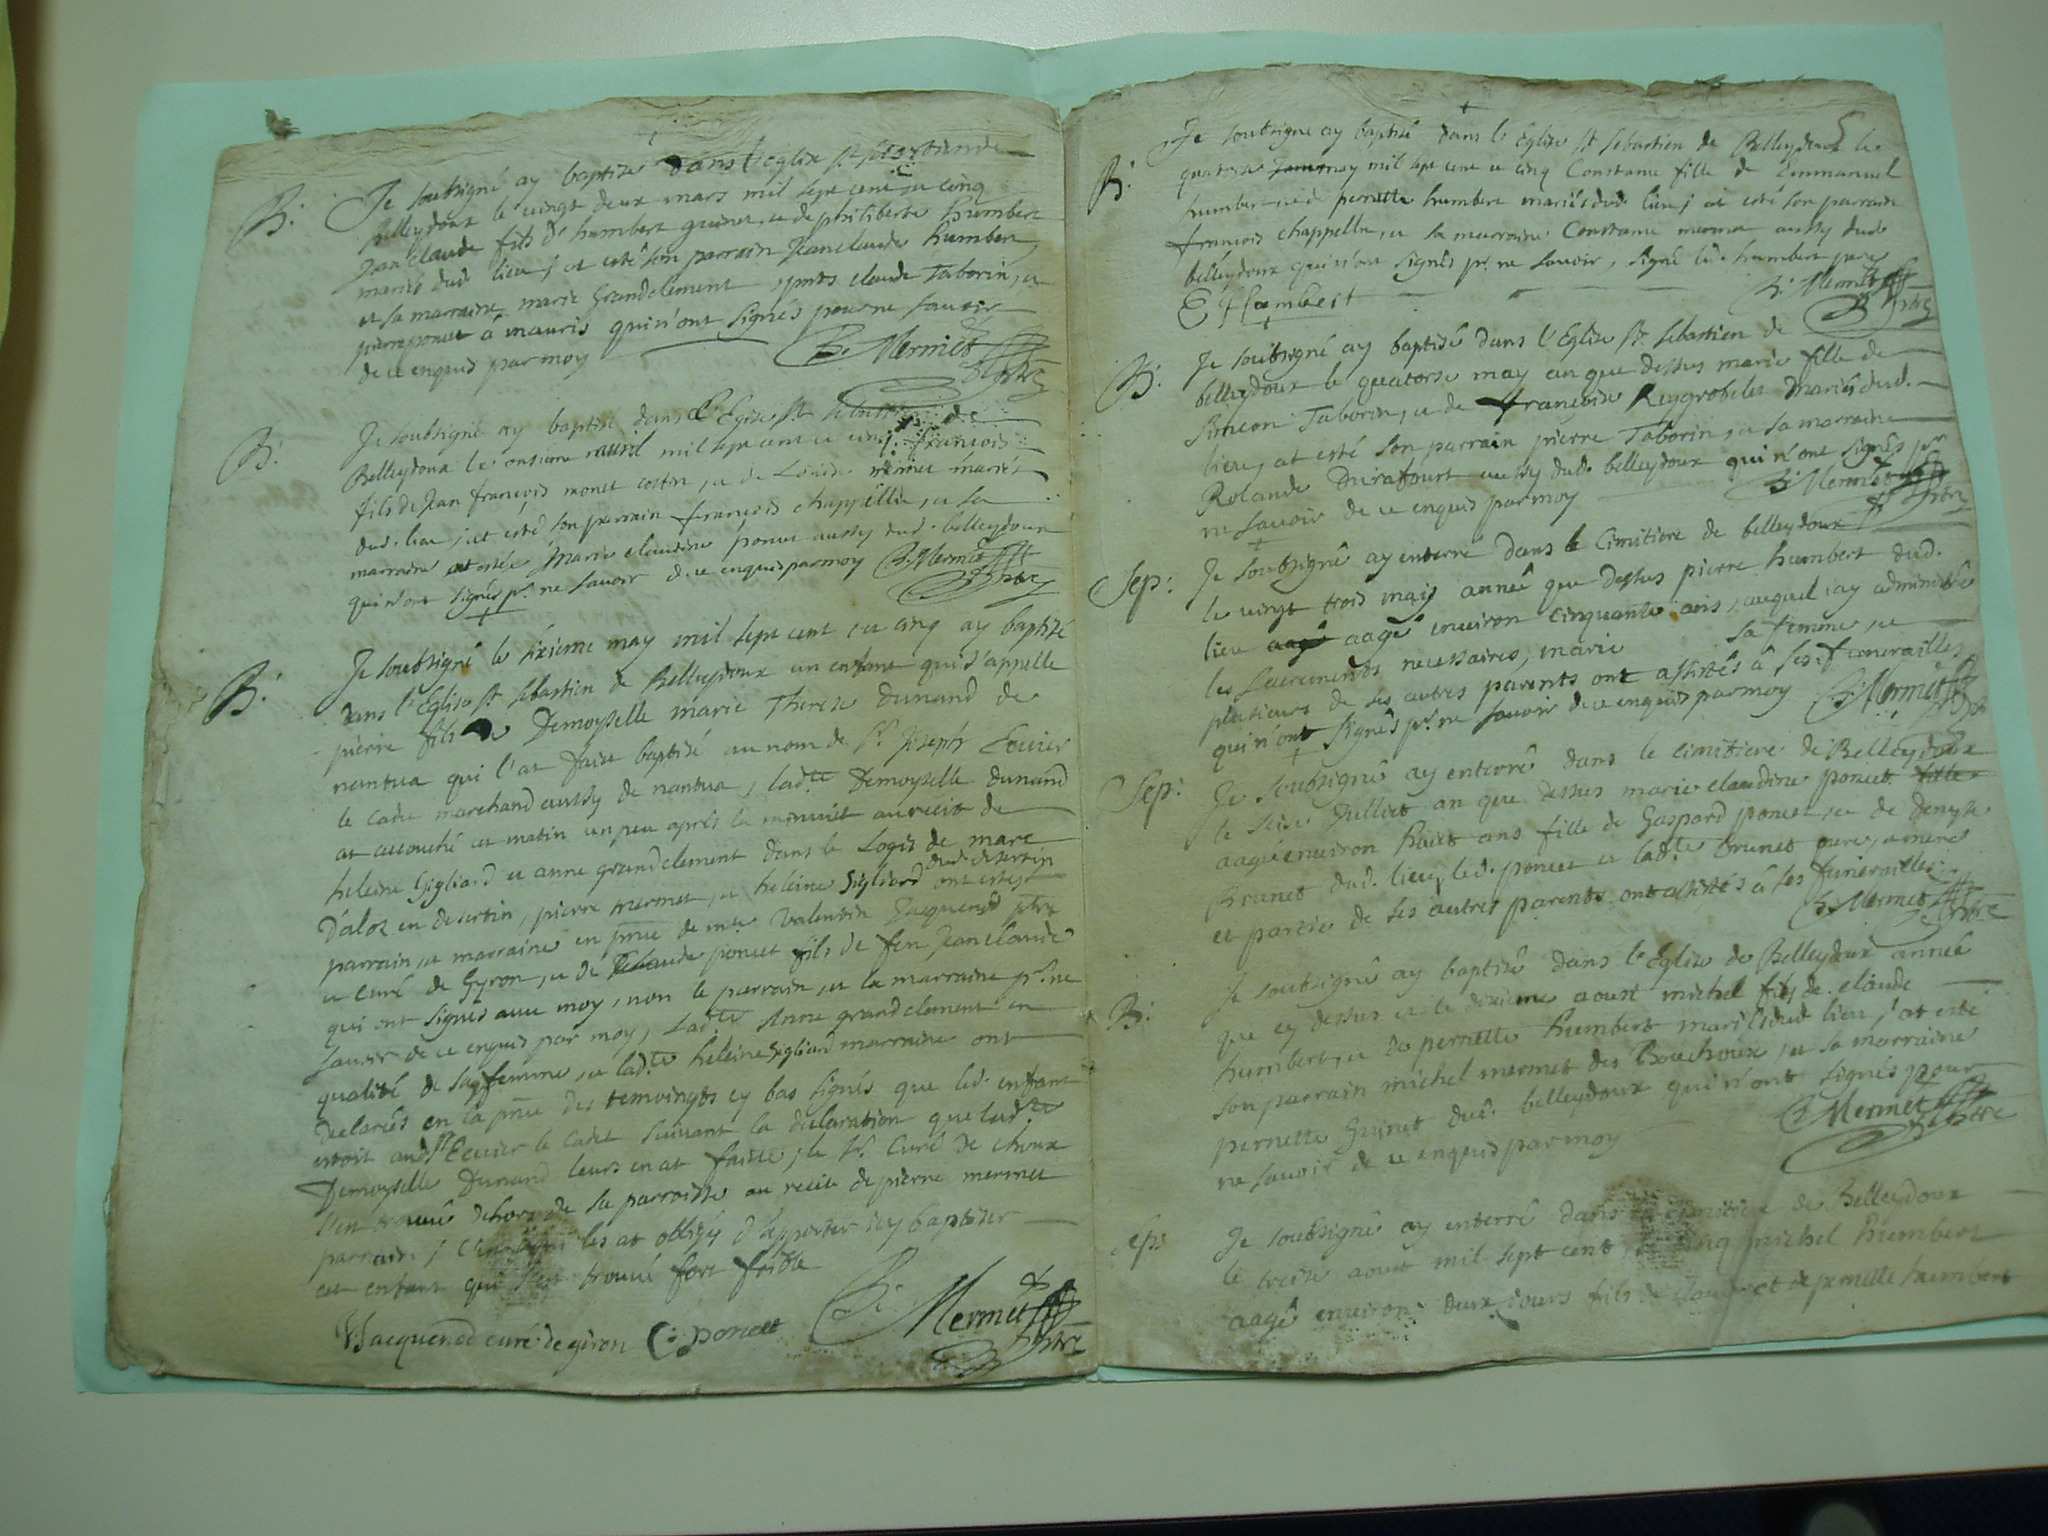 B. Je soubsigné ay baptize dans l'Eglise St sebastien de
belleydoux le vingt deux mars mil sept cent et cinq
Jan Claude fils d' humbert guinet, et de philiberte humbert
mariés dud. lieu; at esté son parrain Jean claude humbert,
et sa marraine marie Grandclement, claude Taborin, et
qui n'ont signés pour ne savoir
de ce enquis par moy B. Mermet ptre
B. Je soubsigné ay baptisé dans l'Eglise St sebastien de
Belleydoux le onsieme avril mil sept cent et cinq françois
fils de Jean françois monet et de mariés
dud. lieu, at esté son parrain françois chappellu, et sa
marraine at estée Marie claudine poncet aussy dud. belleydoux
qui n'ont signés pr. ne savoir de ce enquis par moy B. Mermet ptre
B. Je soubsigné le sixieme may mil sept cent et cinq ay baptizé
dans l'Eglise St Sebastien de Belleydoux un enfant qui s'appelle
pierre fils de Demoyselle marie Therese Dunand de
nantua qui l'at faict baptisé au nom de Sr. Joseph
le cadet marchand aussy de nantua, lad.te Demoyselle Dunand
at accouché ce matin un peu après le minuict au recit de
heleine Gigliard et anne grandclement dans le Logis de marc
dud. desertin
D'aloz en desertin, pierre mermet, et heleine Gigliard ont estés
parrain, et marraine en pnce de mre Valentin Jacquenod ptre
et curé de Gyron, et de Claude poncet fils de feu Jean claude
qui ont signés avec moy, non le parrain, et la marraine pr. ne
savoir de ce enquis par moy, Lad.te Anne grandclement en
qualité de sagefemme, et lad.te heleine Gigliard marraine ont
declarés en la pnce des temoingts cy bas signés que led. enfant
estoit aud. Sr le cadet suivant la declaration que lad.te
Demoyselle Dunand leurs en at faitte, le Sr. Curé de choux
s'est trouvé dehors de sa parroisse au recit de pierre mermet
parrain, les at obligés d'apporter icy baptiser
cet enfant qui s'est trouvé fort foible
V Jacquenod curé de giron C. poncet B. Mermet ptre
B. Je soubsigné ay baptisé dans l'Eglise St sebastien de Belleydoux le
quatorse may mil sept cent et cinq Constance fille de Emmanuel
humbert et de pernette humbert mariés dud. lieu; at esté son parrain
françois chappellu, et sa marraine Constance mermet aussy dud.
belleydoux qui n'ont signés pr. ne savoir, signé led. humbert pere
E Humbert B. Mermet ptre
B. Je soubsigné ay baptisé dans l'Eglise St sebastien de
belleydoux le quatorse may an que dessus marie fille de
Simeon Taborin, et de françoise Reygrobellet Mariés dud.
lieu, at esté son parrain pierre Taborin, et sa marraine
Rolande Durafourt aussy dud. belleydoux qui n'ont signés pr
ne savoir de ce enquis par moy B. Mermet ptre
Sep: Je soubsigné ay enterré dans le Cimitiere de belleydoux
le vingt trois may année que dessus pierre humbert dud.
lieu aagé environ cinquante ans, auquel j'ay administré
les sacrements necessaires, marie sa femme, et
plusieurs de ses autres parents ont assistés à ses funerailles
qui n'ont signés pr. ne savoir de ce enquis par moy B. Mermet ptre
Sep: Je soubsigné ay enterré dans le cimitiere de Belleydoux
le seise Julliet an que dessus marie claudine poncet fille
aagée environ huict ans fille de Gaspard poncet, et de Denyse
Brunet dud. lieu, led. poncet et lad.te Brunet pere, et mere
et partie de ses autres parents ont assistés à ses funerailles
B. Mermet ptre
B. Je soubsigné ay baptisé dans l'Eglise de Belleydoux année
que cy dessus et le dixieme aoust michel fils de claude
humbert, et de pernette humbert mariés dud. lieu, at esté
son parrain michel mermet des Bouchoux, et sa marraine
pernette Guinet dud. belleydoux qui n'ont signés pour
ne savoir de ce enquis par moy B. Mermet ptre
Sep: Je soubsigné ay enterré dans le cimitiere de Belleydoux
le treise aoust mil sept cent et cinq michel humbert
aagé environ deux jours fils de claude et de pernette humbert